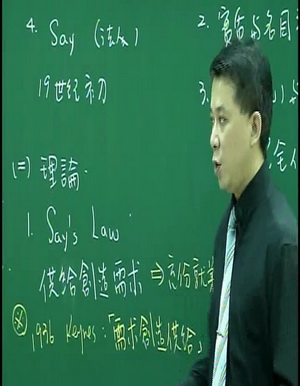 4. Say (法人)
2. 實質与名目
19世紀初
3.
(二) 理論.
1. Say's Law
供給創造需求 ⇒ 充份就業
※ 1936 Keynes:「需求創造供給」